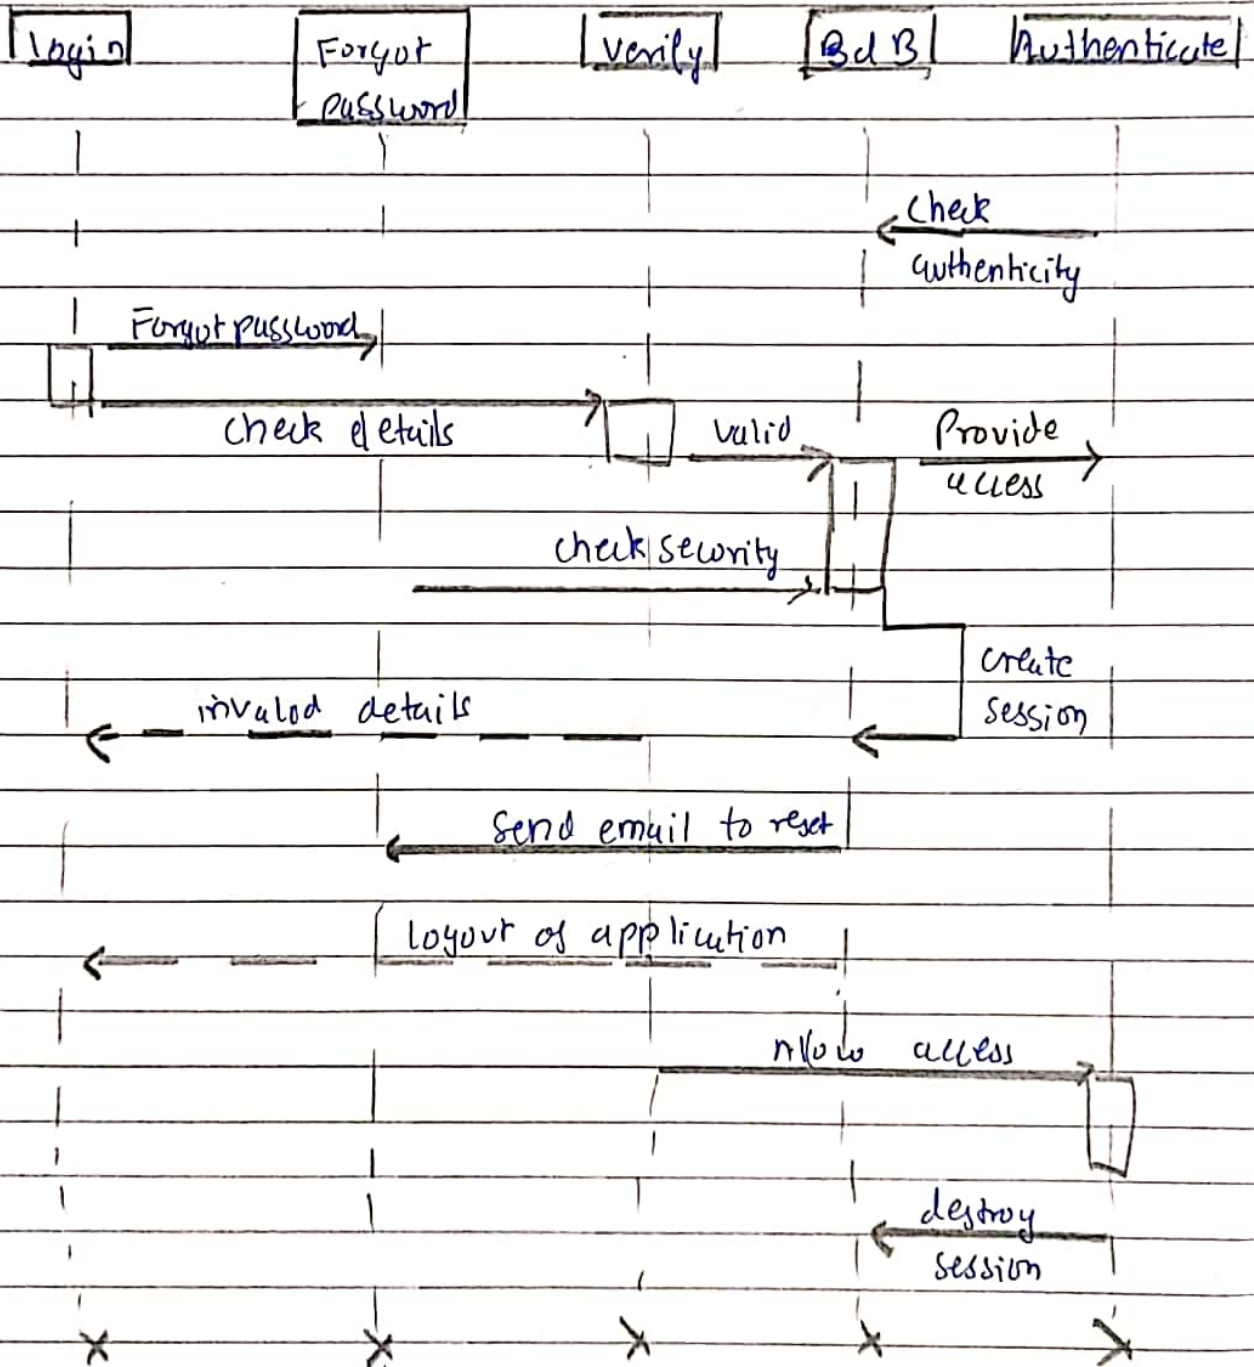 Login
Forgot
password
Verify
BdB
Authenticate
Check
authenticity
Forgot password
check details
valid
Provide
access
check security
create
session
invalod details
Send email to reset
logout of application
allow access
destroy
session